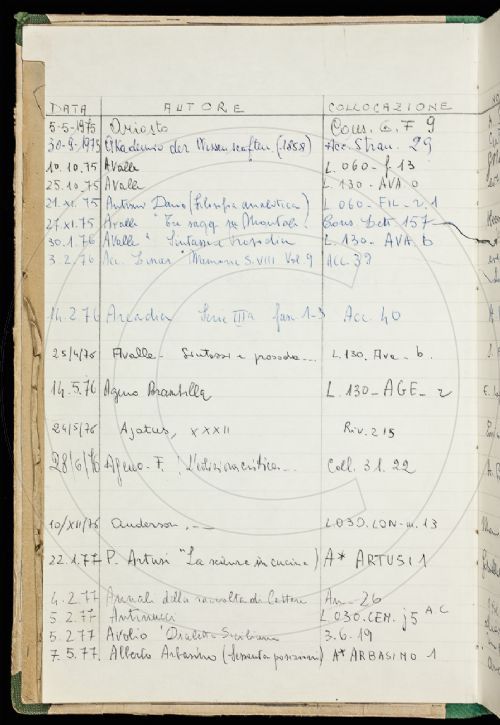 DATA AUTORE COLLOCAZIONE
5-5-1975 Ariosto Cons. G. F 9
30-9-1975 Akademie der Wissenschaften (1858) Acc. Stran. 29
10.10.75 Avalle L. 060- f 13
25.10.75 Avalle L. 130 - AVA 0
21.XI.75 Antiseri Dario (Filosofia analitica) L 060- FIL - 2.1
27 XI.75 Avalle "Tre saggi su Montale" Cons Lett 157
30.1.76 Avalle " Sintassi e Prosodia L.130- AVA b
3.2.76 Acc. Lincei "Memorie S. VIII Vol. 9 ACC. 39
14.2.76 Arcadia Serie IIIa fasc. 1-3 Acc. 40
23/4/76 Avalle - Sintassi e prosodia... L.130. Ava - b.
14.5.76 Ageno Brambilla L. 130- AGE - 2
24/5/76 Ajatus, XXXII Riv. 215
28/6/76 Ageno - F. : L'edizione critica... Coll. 31. 22
10/XII/76 Anderson, -- L030. LON - m. 13
22.1.77 P. Artusi "La scienza in cucina) A* ARTUSI 1
4. 2.77 Annali della Facoltà di Lettere Ann - 26
5 2.77 Antinucci L 030. CEN. j5 A C
5.2.77 Avolio "Dialetto Siciliano 3. 6. 19
7. 5.77 Alberto Arbasino (Sessanta posizioni) A* ARBASINO 1